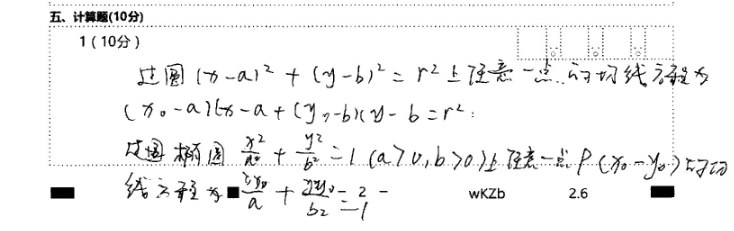 五、计算题(10分)
1（10分）
过圆 (x-a)² + (y-b)² = r² 上任意一点的切线方程为
(x₀-a)(x-a + (y₀-b)(y-b = r²;
过圆 椭圆 x²/a² + y²/b² = 1 (a>0, b>0)上任意一点 P(x₀-y₀)的切
线方程为 xx₀/a + yy₀/b2 =
wKZb 2.6